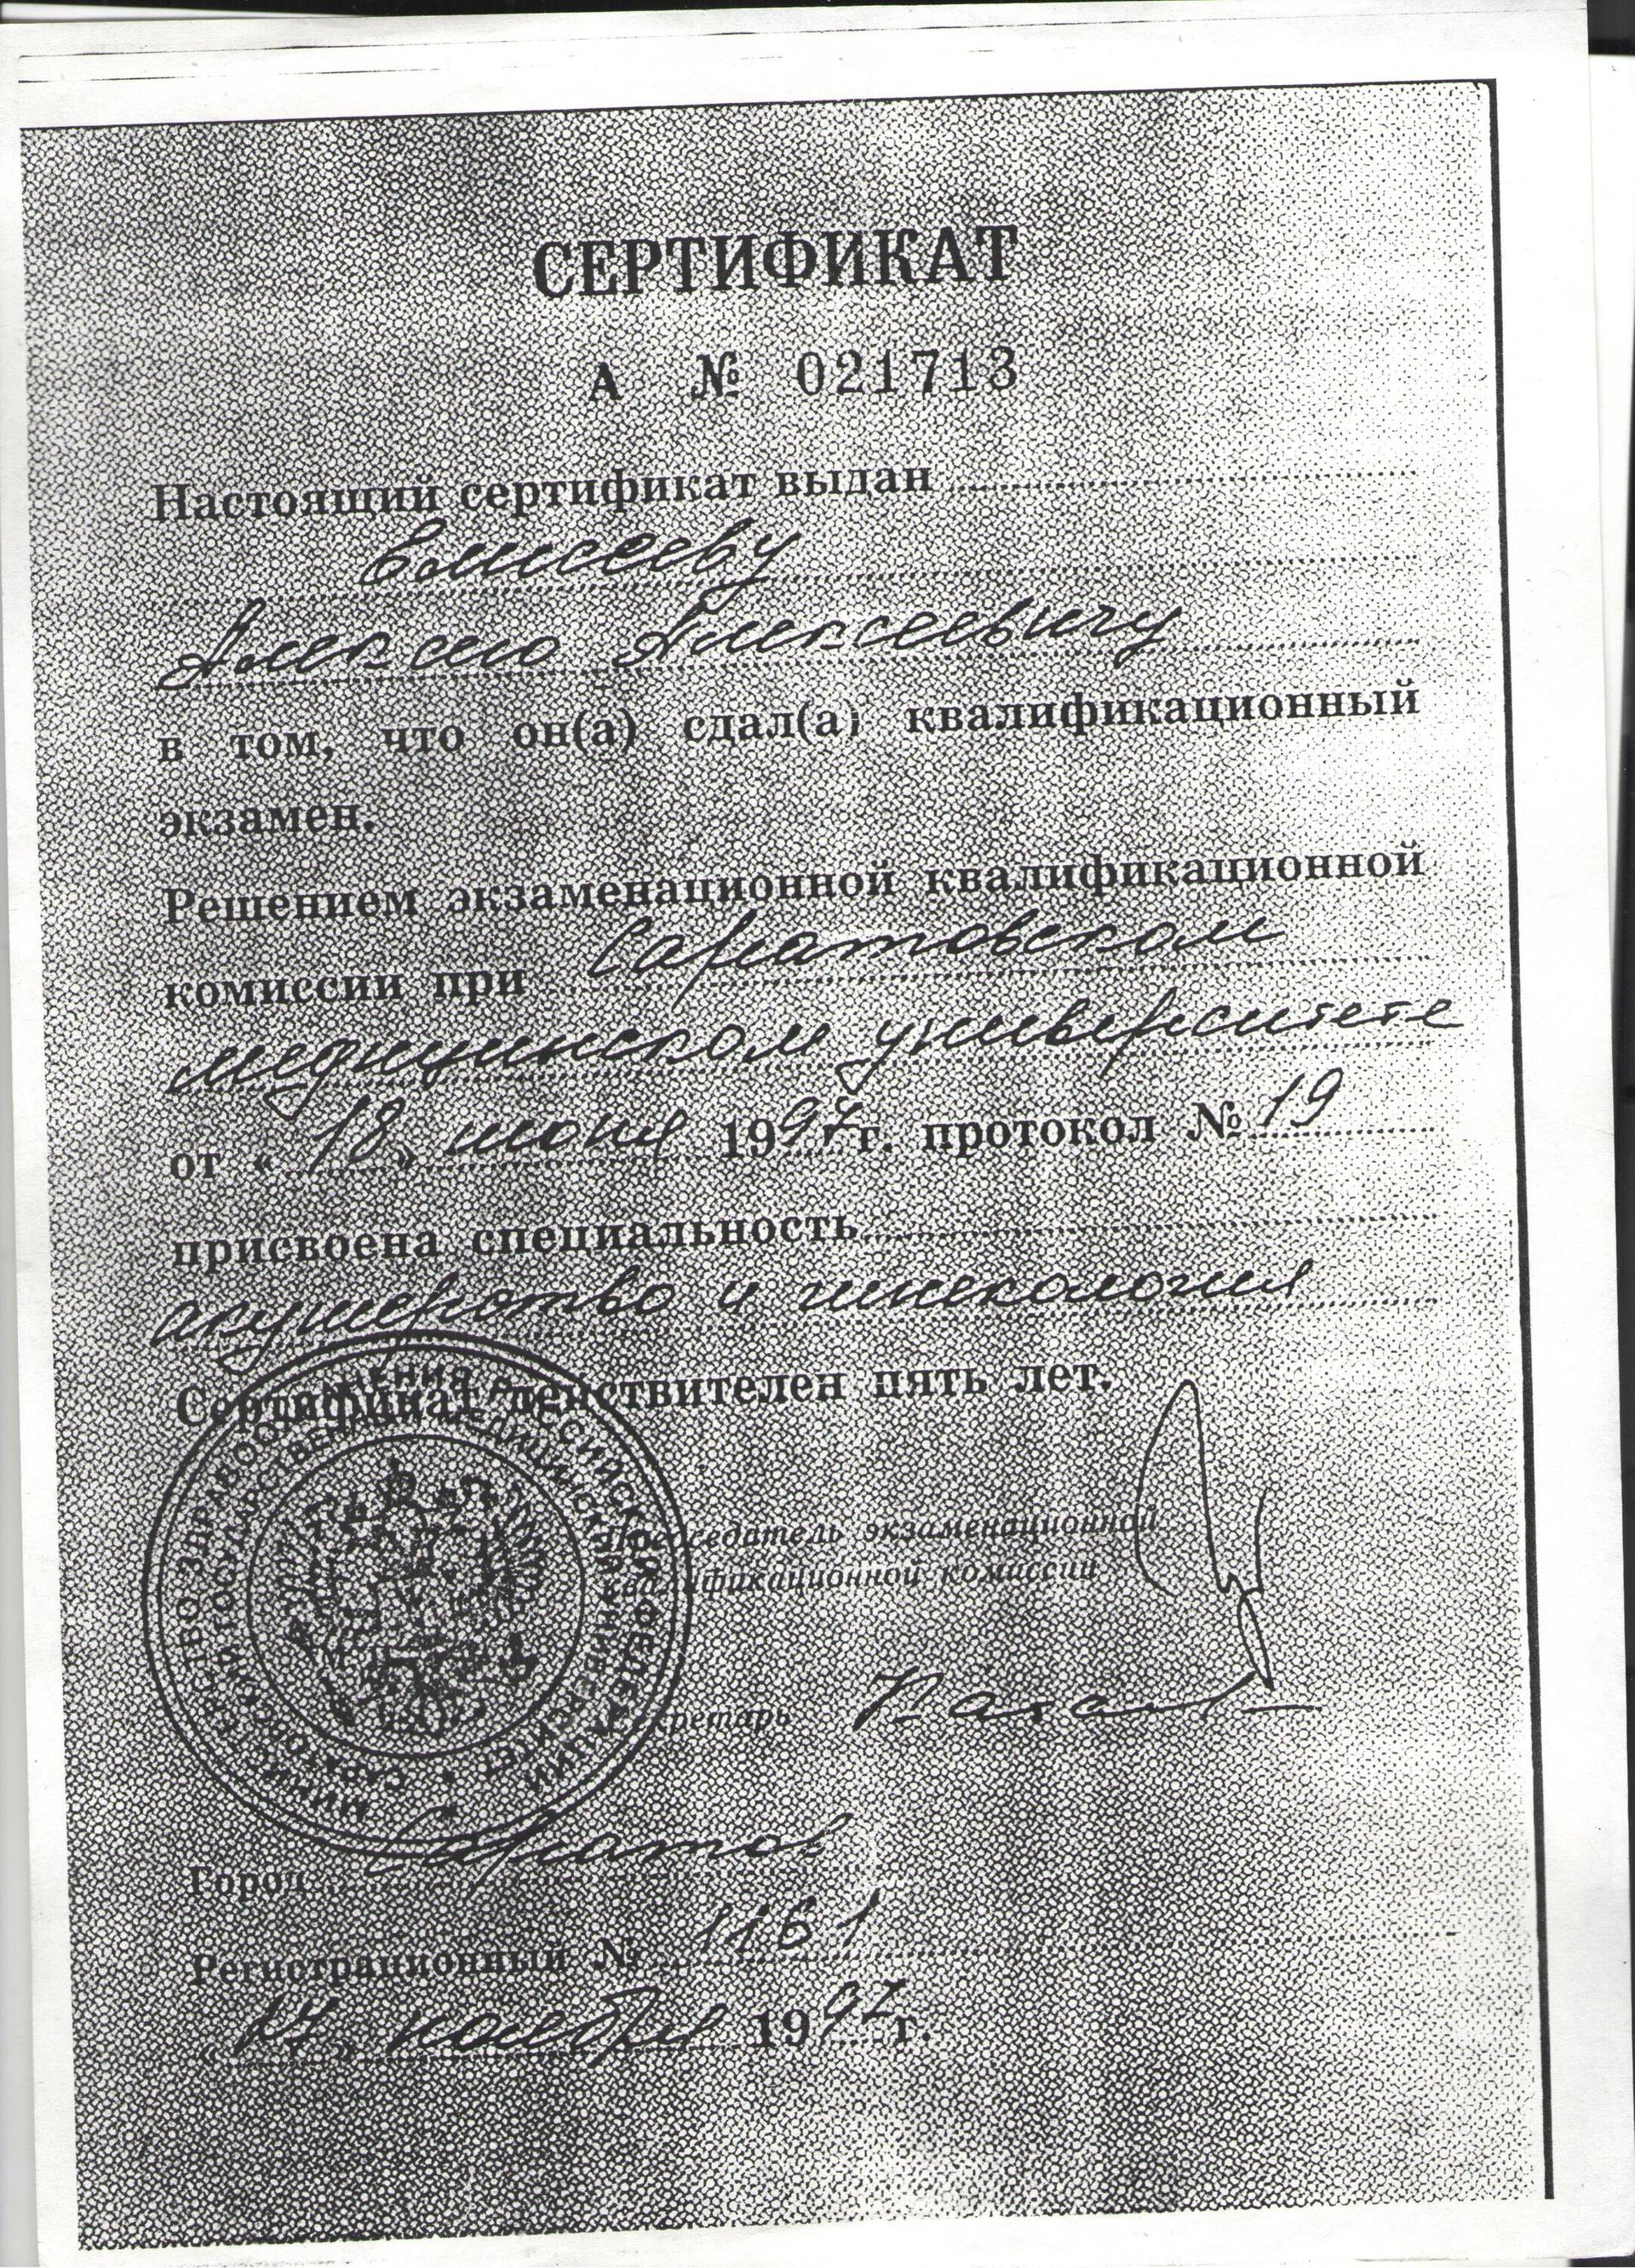 СЕРТИФИКАТ
А № 021713
Настоящий сертификат выдан
Елисееву
Алексею Алексеевичу
в том, что он(а) сдал(а) квалификационный
экзамен.
Решением экзаменационной квалификационной
комиссии при Саратовском
медицинском университете
от « 18 » июня 1997 г. протокол № 19
присвоена специальность
акушерство и гинекология
Сертификат действителен пять лет.
МИНИСТЕРСТВО ЗДРАВООХРАНЕНИЯ РОССИЙСКОЙ ФЕДЕРАЦИИ
САРАТОВСКИЙ ГОСУДАРСТВЕННЫЙ МЕДИЦИНСКИЙ УНИВЕРСИТЕТ
Председатель экзаменационной
квалификационной комиссии
Секретарь
Город Саратов
Регистрационный № 1161
« 17 » ноября 1997 г.